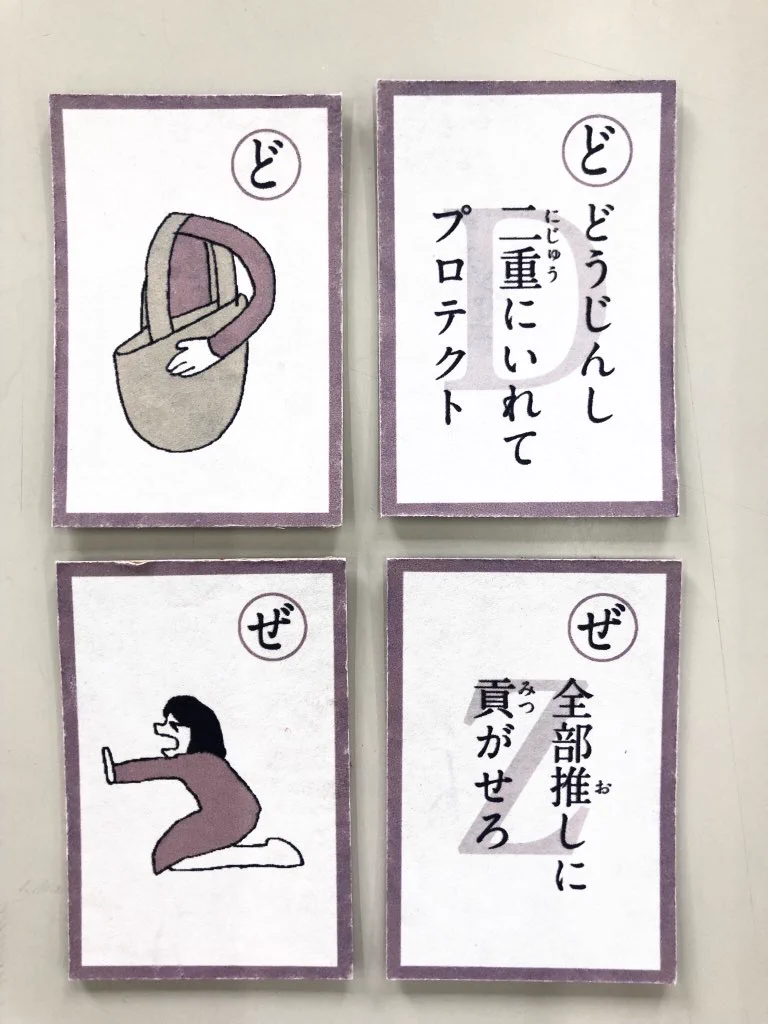 ど
ど
どうじんし
二重にいれて
にじゅう
プロテクト
D
ぜ
ぜ
全部推しに
お
貢がせろ
みつ
Z